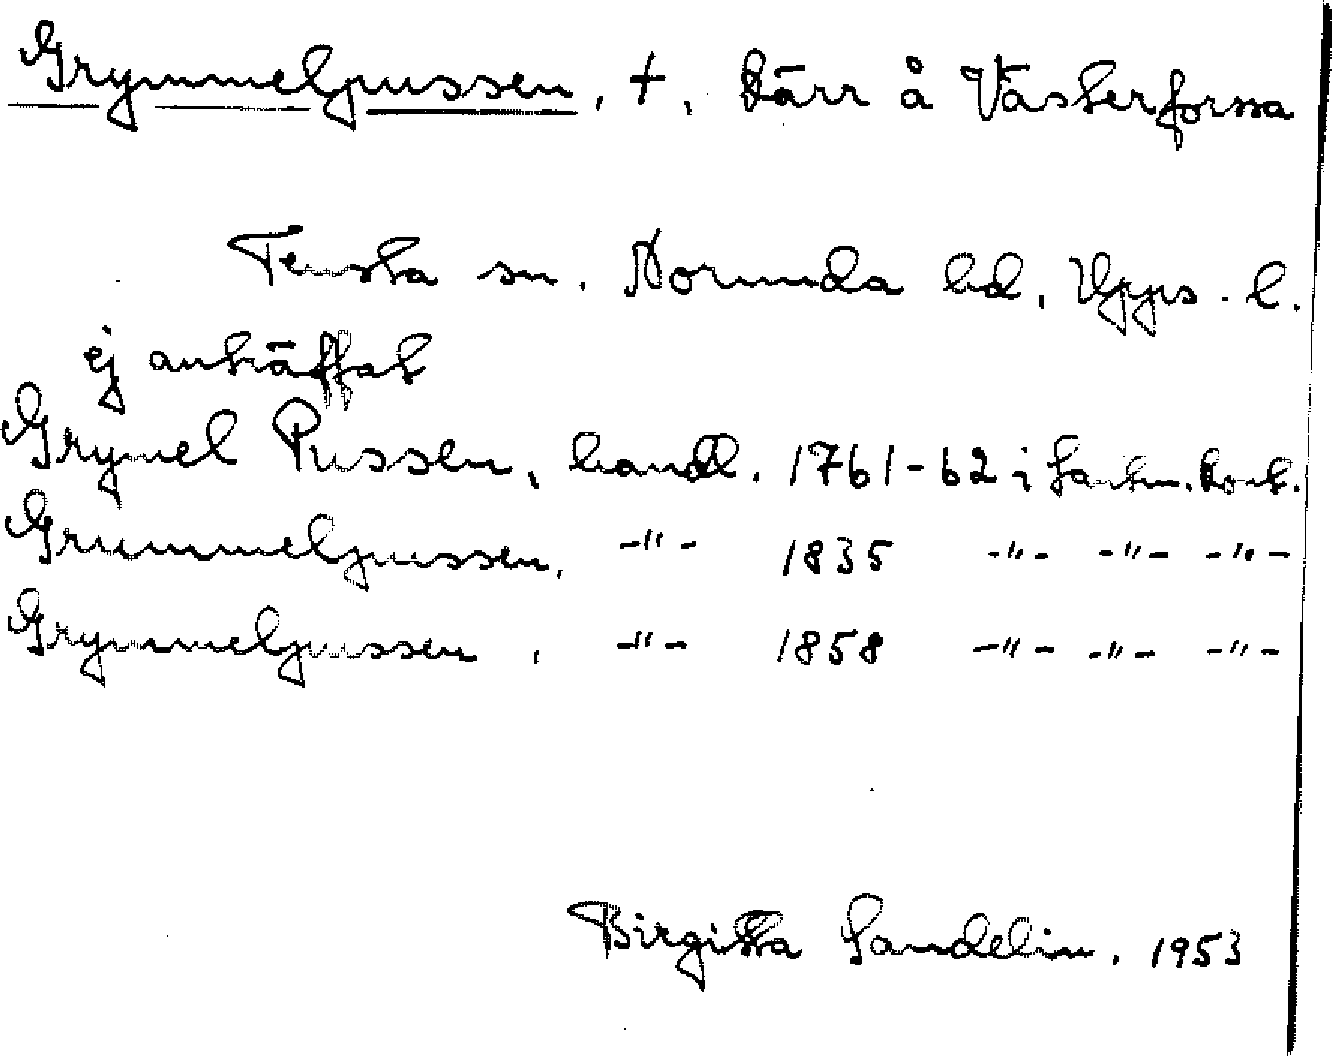 Grymmelpussen, +, kärr å Västerforsa
Tensta sn. Norunda hd. Upps. l.
ej anträffat
Grymel Pussen, handl. 1761-62 i Lantm. kont.
Grummelpussen, -"- 1835 -"- -"- -"-
Grymmelpussen, -"- 1858 -"- -"- -"-
Birgitta Sandelin. 1953